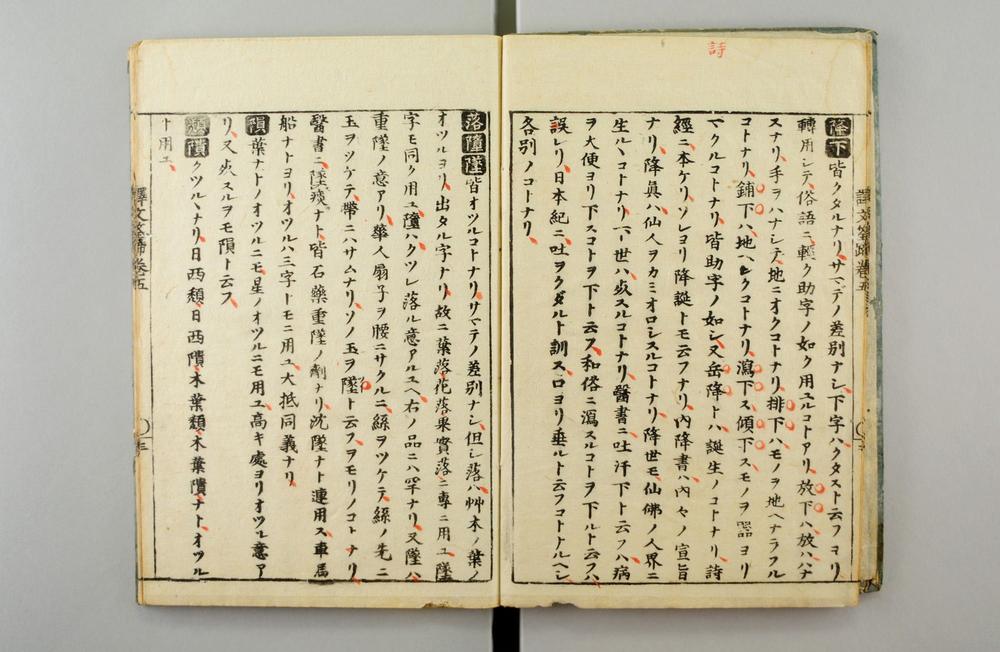 詩
降下皆クタルナリサマデノ差別ナシ下字ハクタスト云フヨリ
轉用シテ俗語ニ輕ク助字ノ如ク用ユルコトアリ放下ハ放ハハナ
スナリ手ヲハナシテ地ニオクコトナリ排下ハモノヲ地ヘナラフル
コトナリ鋪下ハ地ヘシクコトナリ瀉下ス傾下スモノヲ器ヨリ
マクルコトナリ皆助字ノ如シ又岳降トハ誕生ノコトナリ詩
經ニ本ケリソレヨリ降誕トモ云フナリ内降書ハ内々ノ宣旨
ナリ降眞ハ仙人ヲカミオロシスルコトナリ降世モ仙佛ノ人界ニ
生ルヽコトナリ下世ハ死スルコトナリ醫書ニ吐汗下ト云フハ病
ヲ大便ヨリ下スコトヲ下ト云フ和俗ニ瀉スルコトヲ下ルト云フハ
誤レリ日本紀ニ吐ヲクダルト訓ス口ヨリ垂ルト云フコトナルヘシ
各別ノコトナリ
譯文筌蹄卷五
落墮墜皆オツルコトナリサマテノ差別ナシ但シ落ハ艸木ノ葉ノ
オツルヨリ出タル字ナリ故ニ葉落花落果實落ニ專ニ用ユ墜
字モ同ク用ユ墮ハクツレ落ル意アルユヘ右ノ品ニハ罕ナリ又墜ハ
重墜ノ意アリ華人扇子ヲ腰ニサクルニ絲ヲツケテ絲ノ先ニ
玉ヲツケテ帶ニハサムナリソノ玉ヲ墜ト云フヲモリノコトナリ
醫書ニ墜痰ナト皆石藥重墜ノ劑ナリ沈墜ナト連用ス車馬
船ナトヨリオツルハ三字トモニ用ユ大抵同義ナリ
隕葉ナトノオツルニモ星ノオツルニモ用ユ高キ處ヨリオツル意ア
リ又死スルヲモ隕ト云フ
頽隤クツルヽナリ日西頽日西隤木葉頽木葉隤ナトオツル
ト用ユ
譯文筌蹄卷五